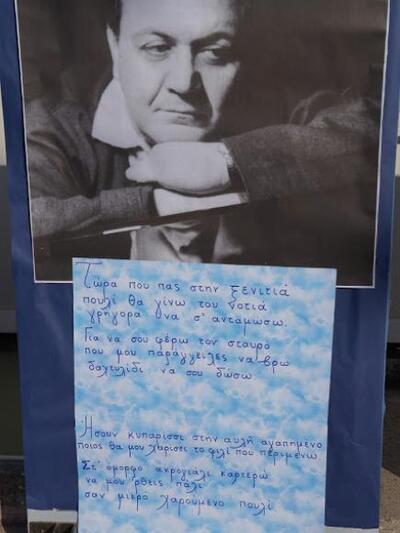 Τώρα που πας στην ξενιτιά
πουλί θα γίνω του νοτιά
γρήγορα να σ' ανταμώσω.
Για να σου φέρω τον σταυρό
που μου παράγγειλες να βρω
δαχτυλίδι να σου δώσω
Ήσουν κυπαρίσσι στην αυλή αγαπημένο
ποιος θα μου χαρίσει το φιλί που περιμένω
Στ' όμορφο ακρογιάλι καρτερώ
να μου ρθεις πάλι
σαν μικρό χαρούμενο πουλί